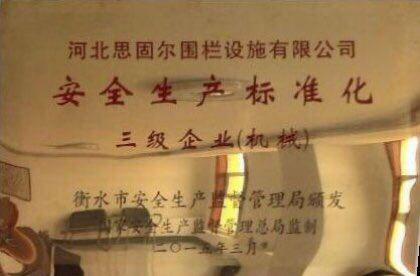 河北思固尔围栏设施有限公司
安全生产标准化
三级企业(机械)
衡水市安全生产监督管理局颁发
国家安全生产监督管理总局监制
二〇一五年三月